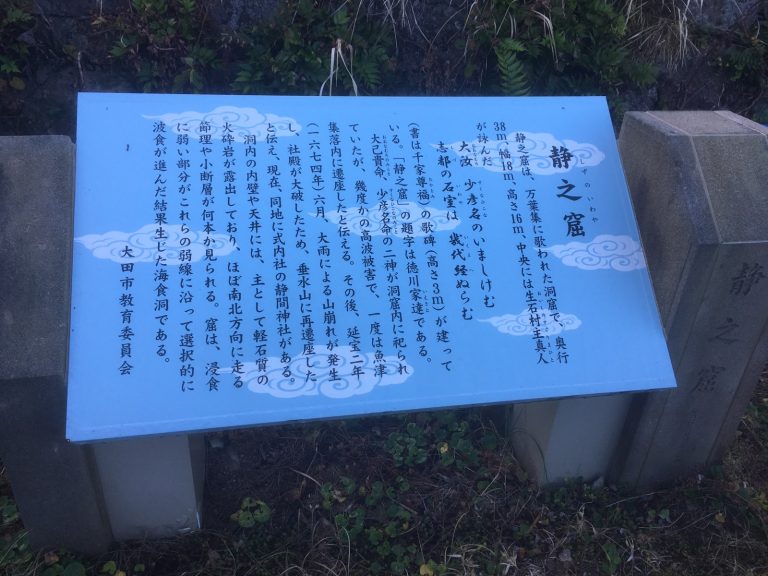 しずのいわや
静之窟
静之窟は、万葉集に歌われた洞窟で、奥行
38m、幅18m、高さ16m、中央には生石村主真人
が詠んだ
大汝 少彦名のいましけむ
志都の石室は 幾代経ぬらむ
(書は千家尊福)の歌碑(高さ3m)が建って
いる。「静之窟」の題字は徳川家達である。
大己貴命、少彦名命の二神が洞窟内に祀られ
ていたが、幾度かの高波被害で、一度は魚津
集落内に遷座したと伝える。その後、延宝二年
(一六七四年)六月、大雨による山崩れが発生
し、社殿が大破したため、垂水山に再遷座した
と伝え、現在、同地に式内社の静間神社がある。
洞内の内壁や天井には、主として軽石質の
火砕岩が露出しており、ほぼ南北方向に走る
節理や小断層が何本か見られる。窟は、浸食
に弱い部分がこれらの弱線に沿って選択的に
波食が進んだ結果生じた海食洞である。
大田市教育委員会
静之窟